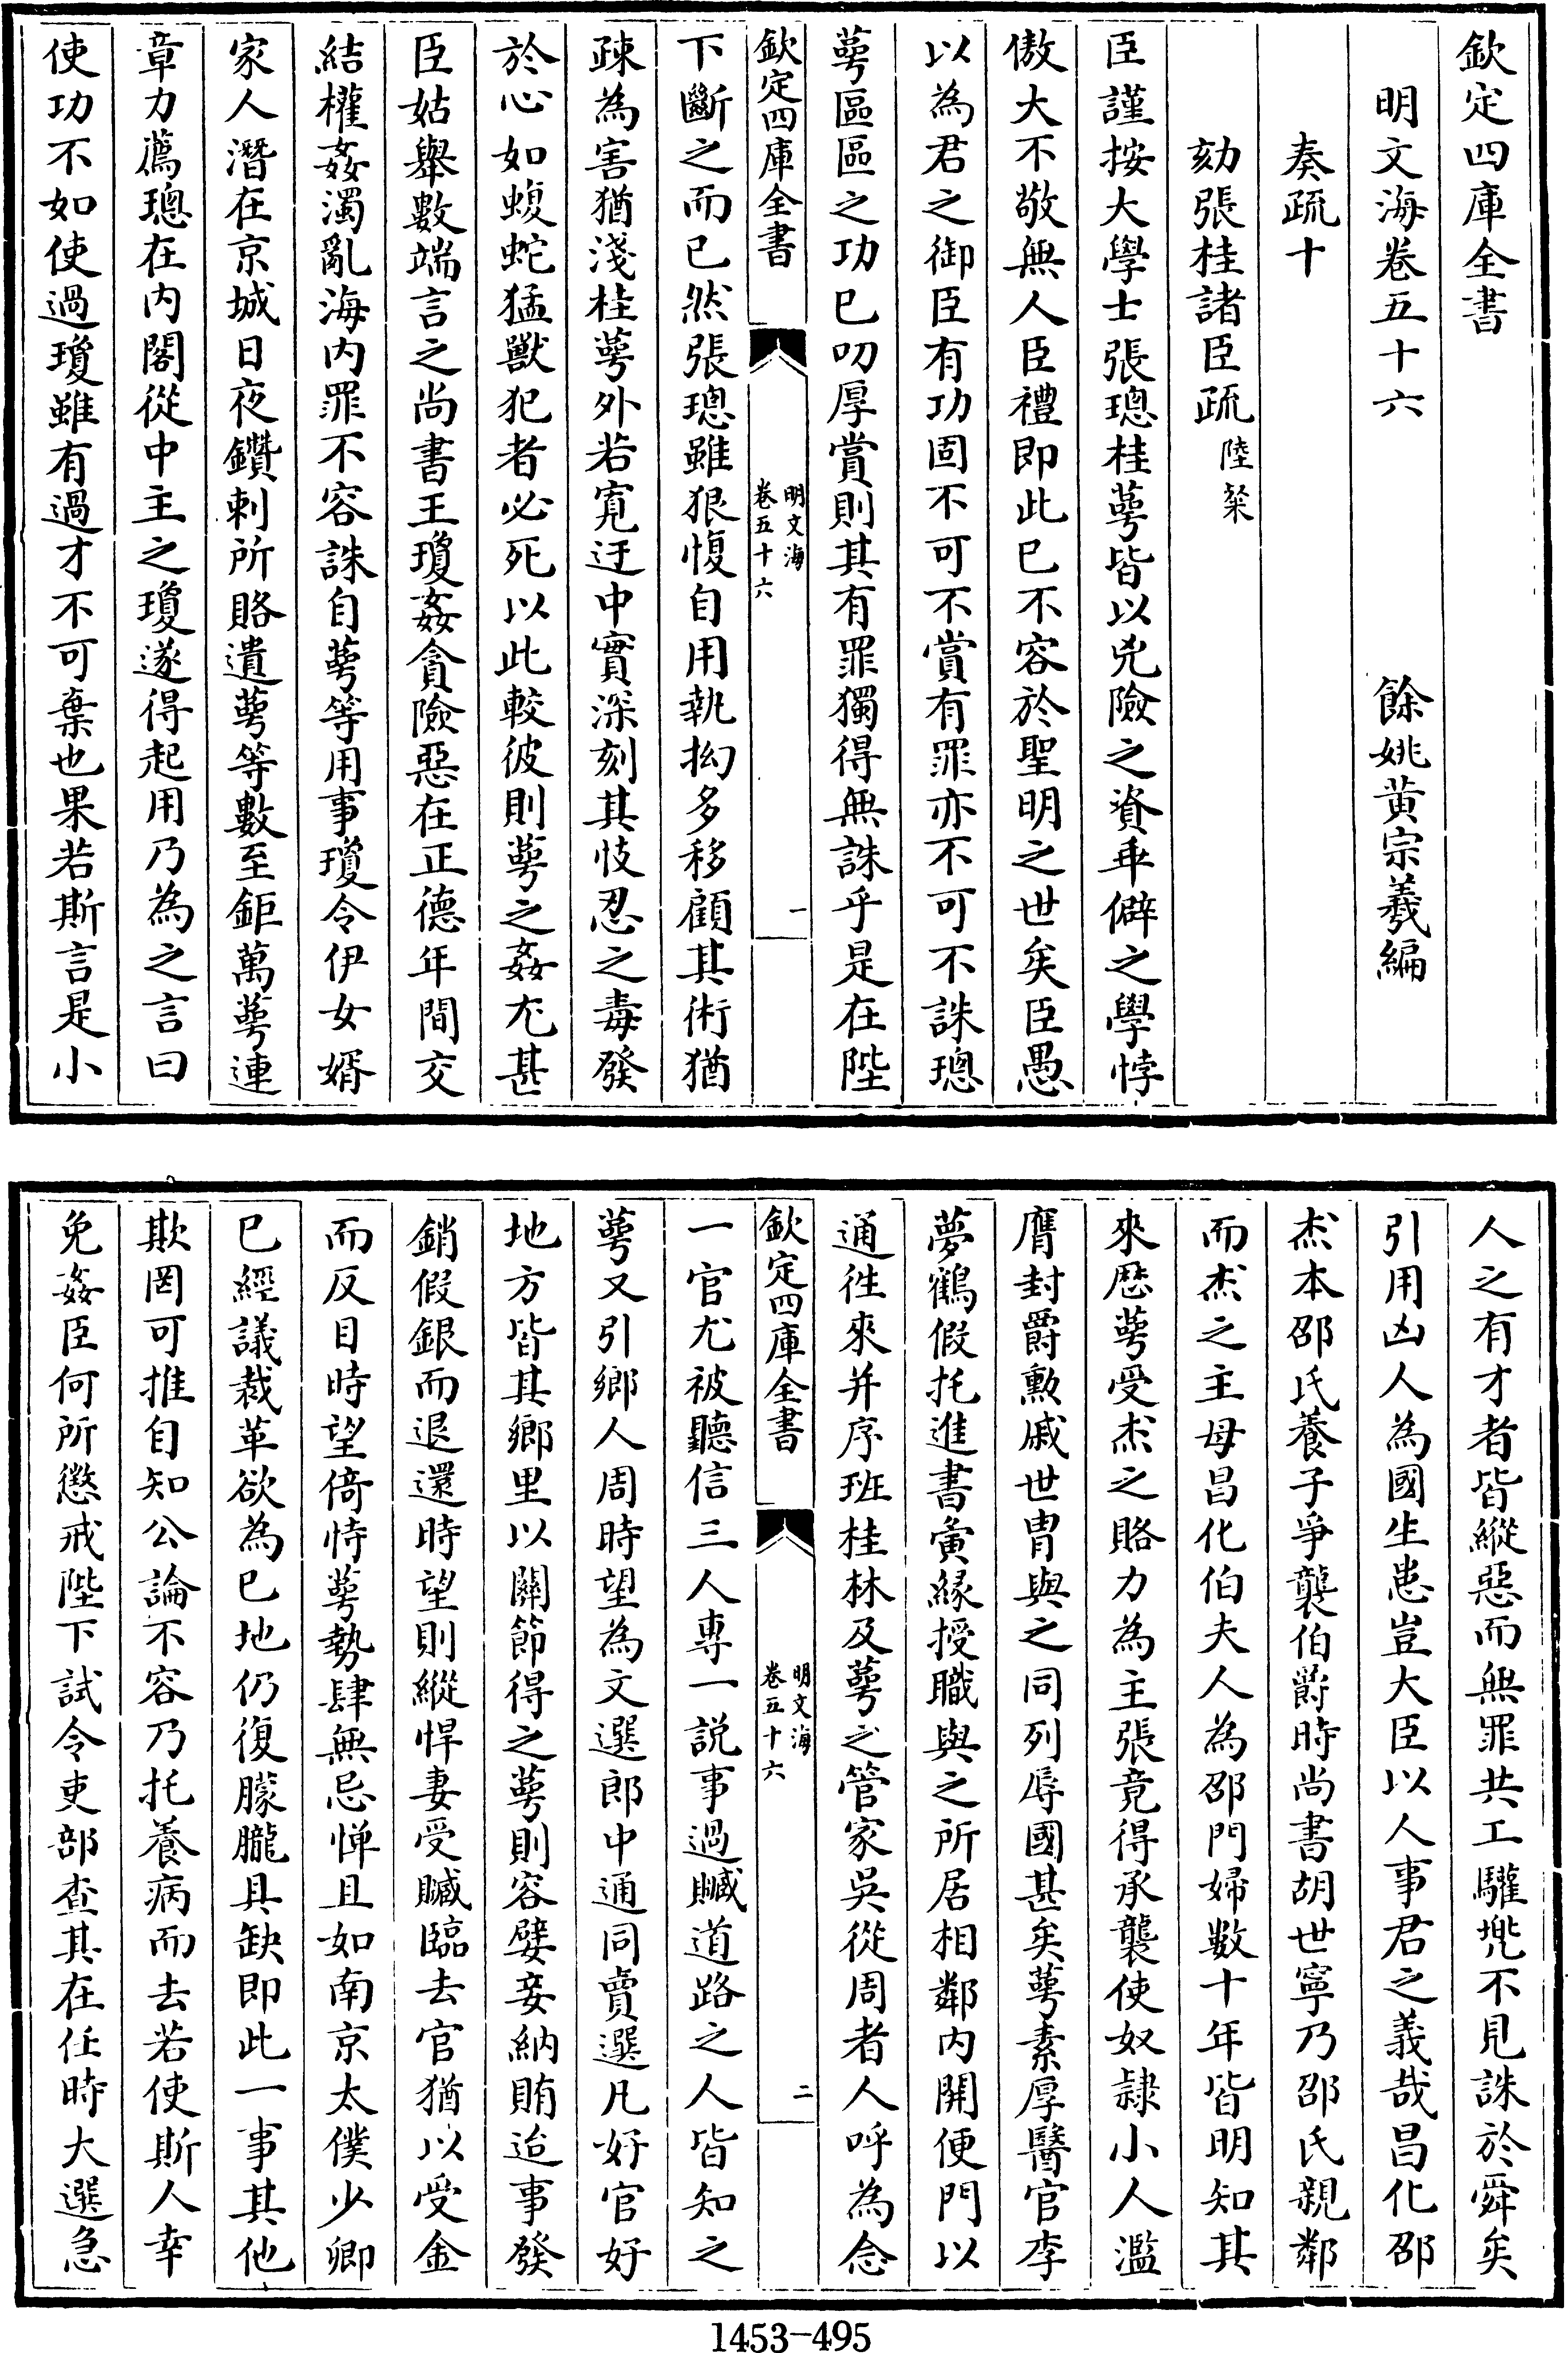 欽定四庫全書
明文海卷五十六
餘姚黄宗羲編
奏疏十
劾張桂諸臣疏陸粲
臣謹按大學士張璁桂萼皆以兇險之資乖僻之學悖
傲大不敬無人臣禮即此已不容於聖明之世矣臣愚
以為君之御臣有功固不可不賞有罪亦不可不誅璁
萼區區之功已叨厚賞則其有罪獨得無誅乎是在陛
欽定四庫全書
明文海
卷五十六
一
下斷之而已然張璁雖狠愎自用執拗多移顧其術猶
疎為害猶淺桂萼外若寛迂中實深刻其忮忍之毒發
於心如蝮蛇猛獸犯者必死以此較彼則萼之姦尤甚
臣姑舉數端言之尚書王瓊姦貪險惡在正德年間交
結權姦濁亂海内罪不容誅自萼等用事瓊令伊女婿
家人潛在京城日夜鑽刺所賂遺萼等數至鉅萬萼連
章力薦璁在内閣從中主之瓊遂得起用乃為之言曰
使功不如使過瓊雖有過才不可棄也果若斯言是小
人之有才者皆縱惡而無罪共工驩兜不見誅於舜矣
引用凶人為國生患豈大臣以人事君之義哉昌化邵
杰本邵氏養子爭襲伯爵時尚書胡世寧乃邵氏親鄰
而杰之主母昌化伯夫人為邵門婦數十年皆明知其
來歴萼受杰之賂力為主張竟得承襲使奴隷小人濫
膺封爵勲戚世胄與之同列辱國甚矣萼素厚醫官李
夢鶴假托進書夤緣授職與之所居相鄰内開便門以
通徃來并序班桂林及萼之管家吳從周者人呼為念
欽定四庫全書
明文海
卷五十六
二
一官尤被聽信三人專一説事過贓道路之人皆知之
萼又引鄉人周時望為文選郎中通同賣選凡好官好
地方皆其鄉里以關節得之萼則容嬖妾納賄迨事發
銷假銀而退還時望則縱悍妻受贓臨去官猶以受金
而反目時望倚恃萼勢肆無忌憚且如南京太僕少卿
已經議裁革欲為已地仍復朦朧具缺即此一事其他
欺罔可推自知公論不容乃托養病而去若使斯人幸
免姦臣何所懲戒陛下試令吏部查其在任時大選急
1453-495